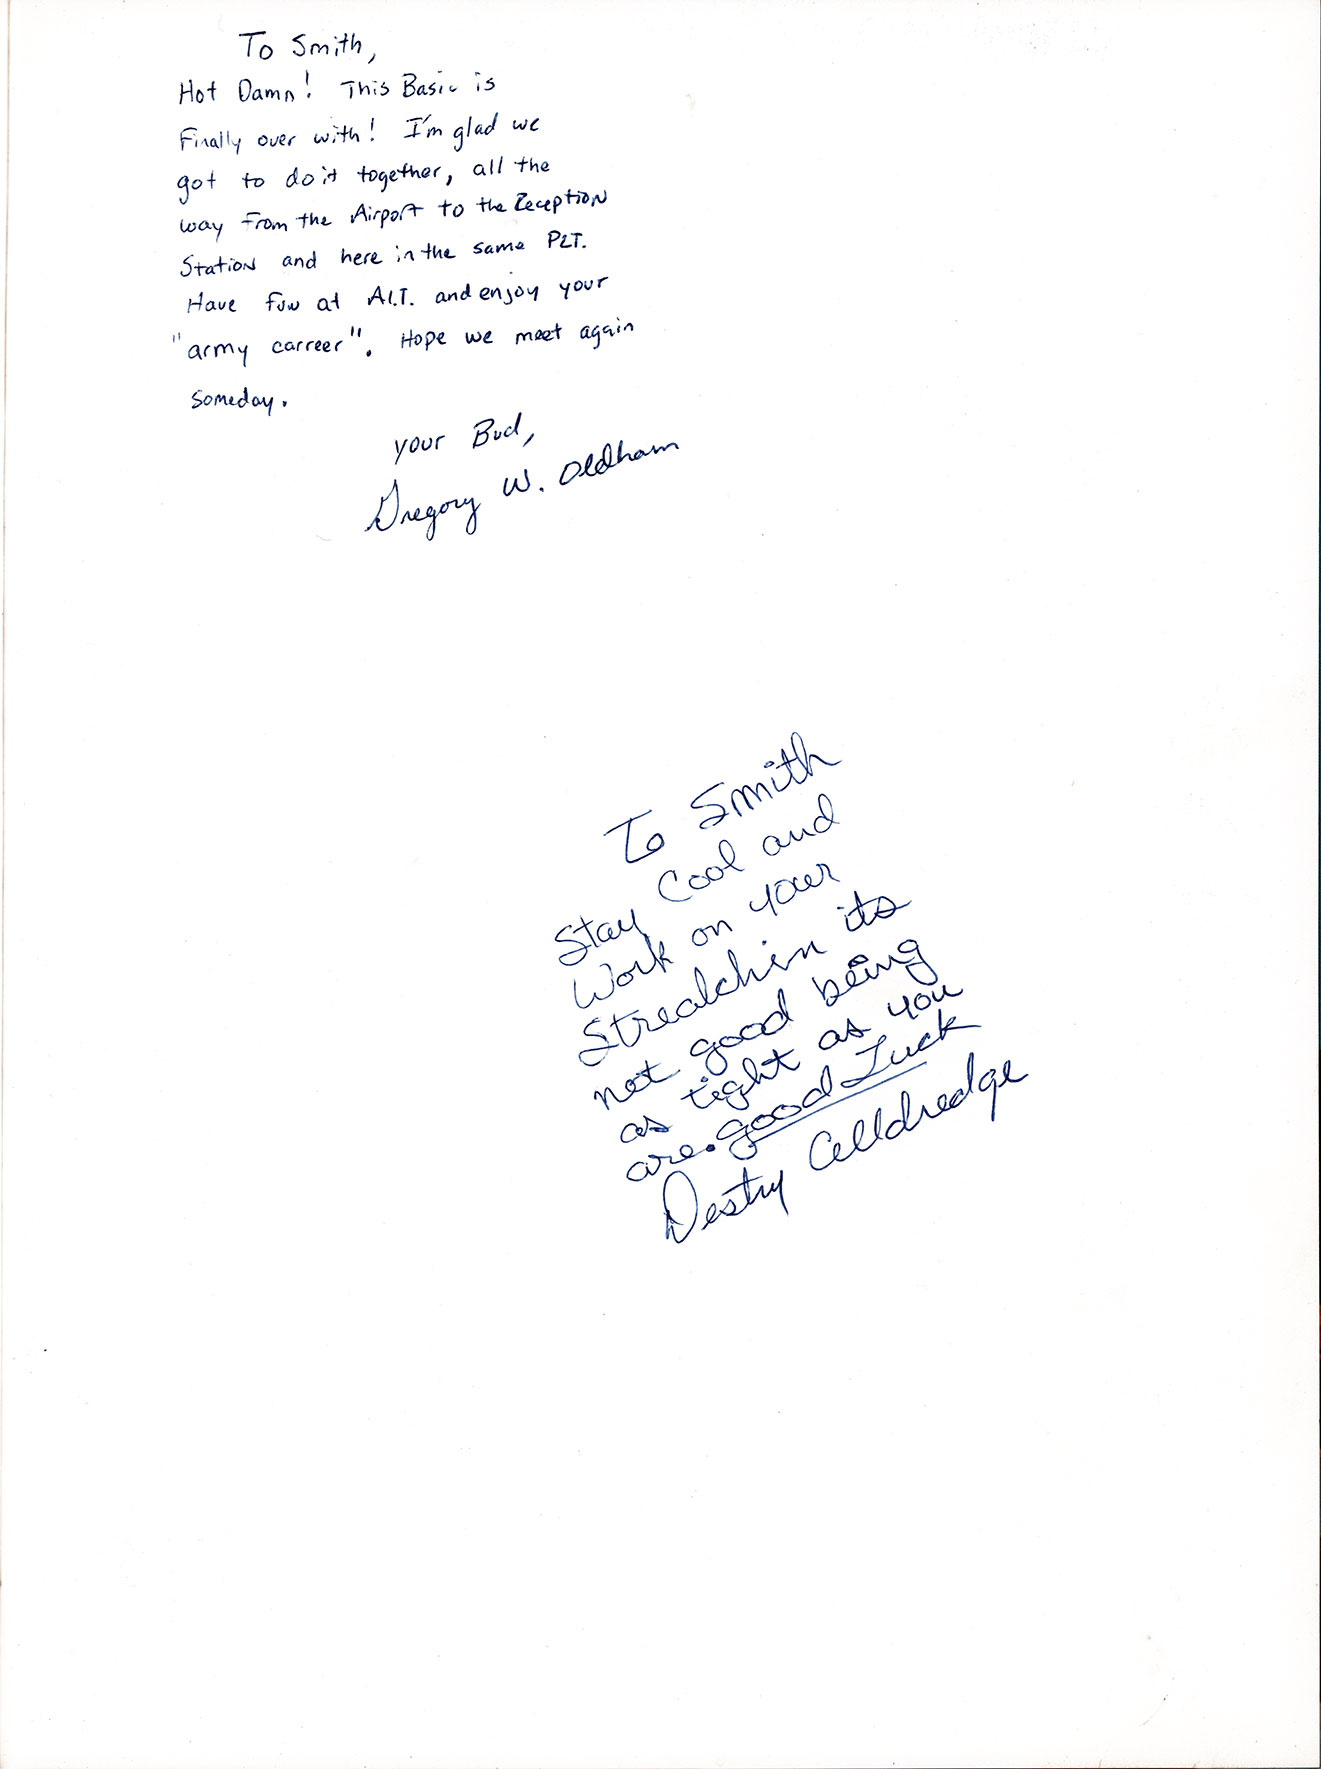 To Smith,
Hot Damn! This Basic is
Finally over with! I'm glad we
got to do it together, all the
way from the Airport to the Reception
Station and here in the same PLT.
Have fun at A.I.T. and enjoy your
"army carreer". Hope we meet again
someday.
your Bud,
Gregory W. Oldham
To Smith
Stay Cool and
Work on your
Streatchin its
not good being
as tight as you
are. good Luck
Destry Alldredge